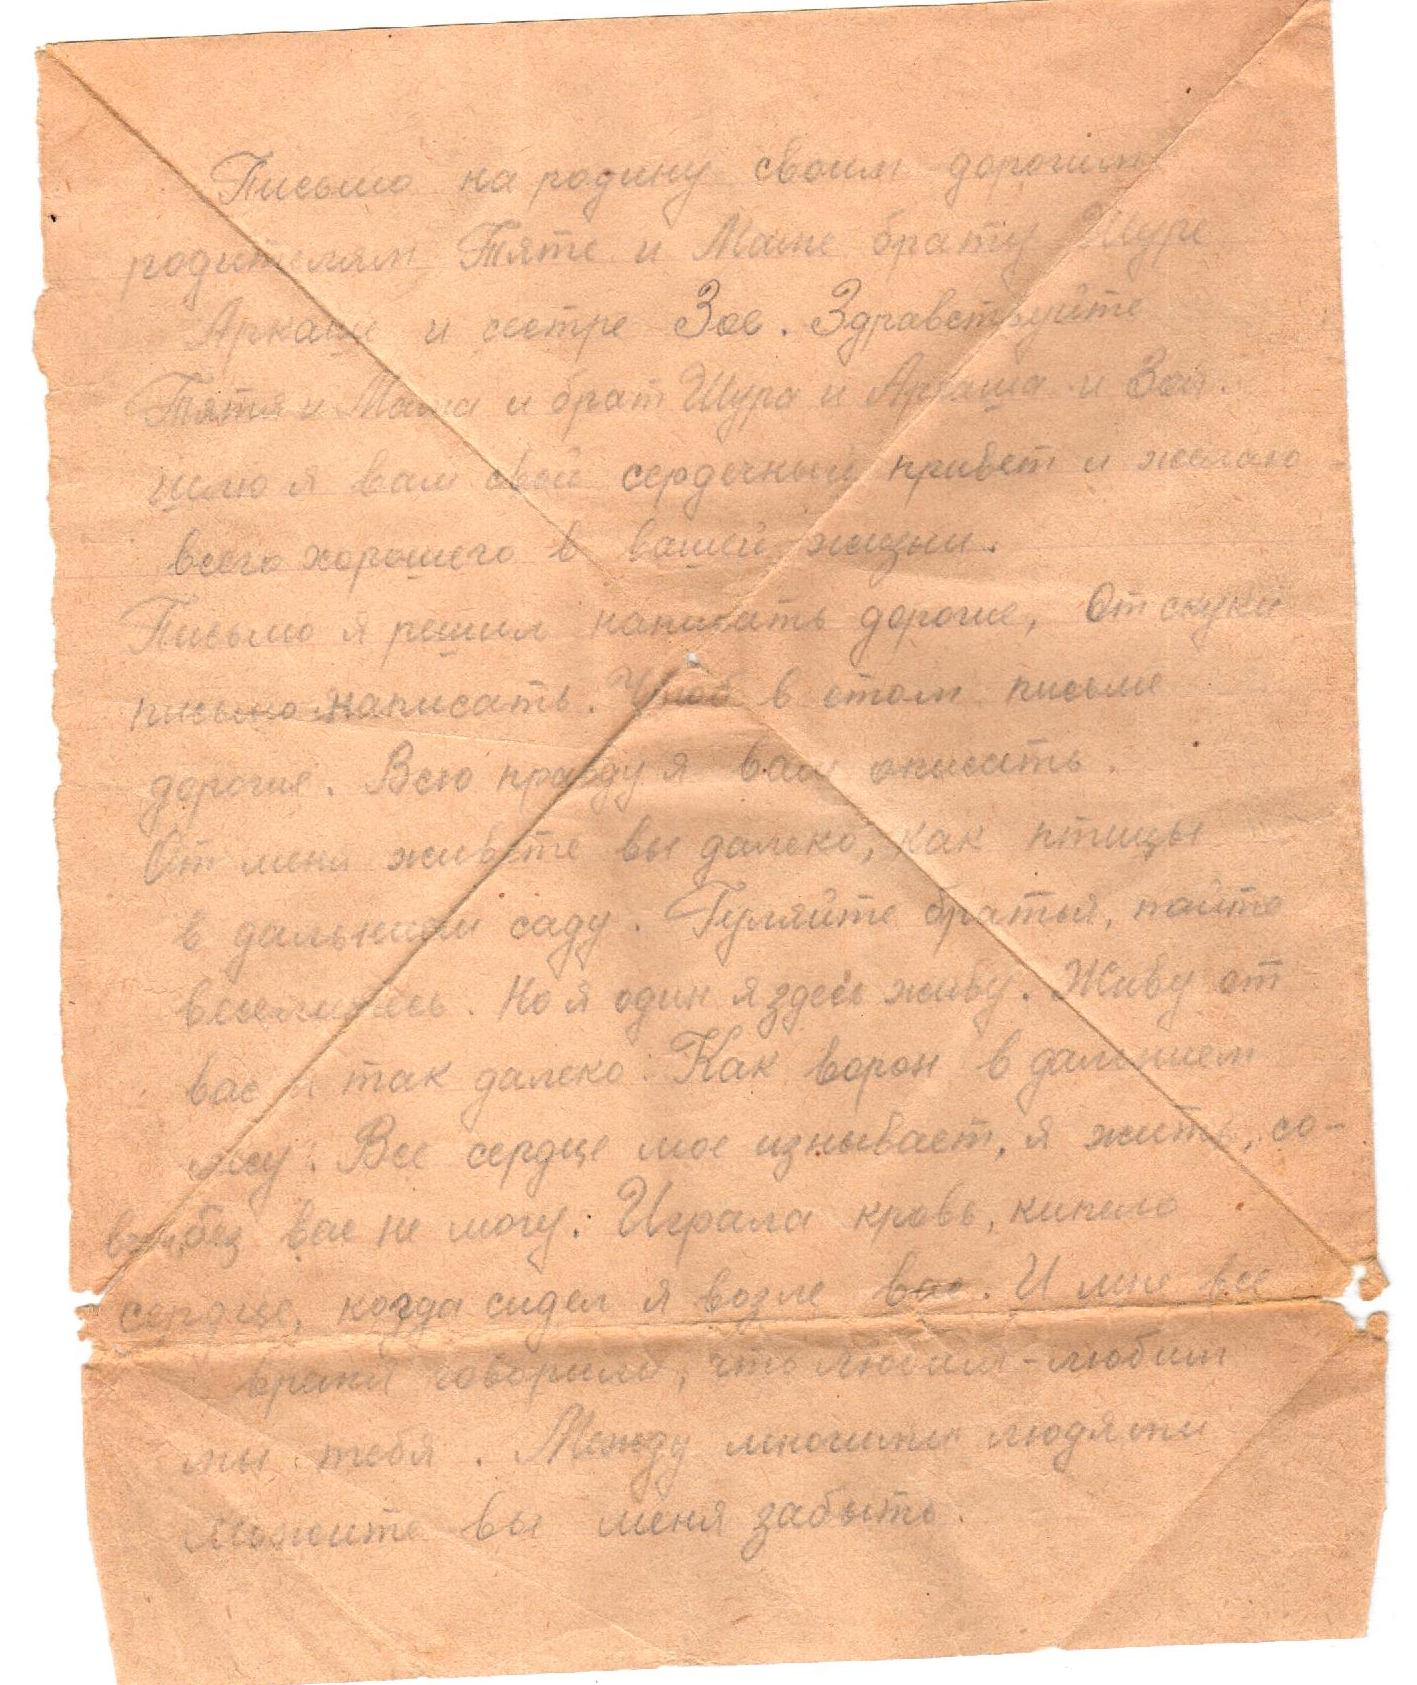 Письмо на родину своим дорогим
родителям Тяте и Маме брату Шуре
Аркаше и сестре Зое. Здравствуйте
Тятя и Мама и брат Шура и Аркаша и Зоя.
шлю я вам свой сердечный привет и желаю
всего хорошего в вашей жизни.
Письмо я решил написать дорогие, От скуки
письмо написать. Чтоб в этом письме
дорогие. Всю правду я вам описать.
От меня живете вы далеко, как птицы
в дальнием саду. Гуляйте братья, пойте
веселитесь. Но я один я здесь живу. Живу от
вас я так далеко. Как ворон в дальнием
лесу. Все сердце мое изнывает, я жить, со-
всем, без вас не могу. Играла кровь, кипело
сердце, когда сидел я возле вас. И мне все
время говорили, что любим-любим
мы тебя. Между многими людями
Можите вы меня забыть.